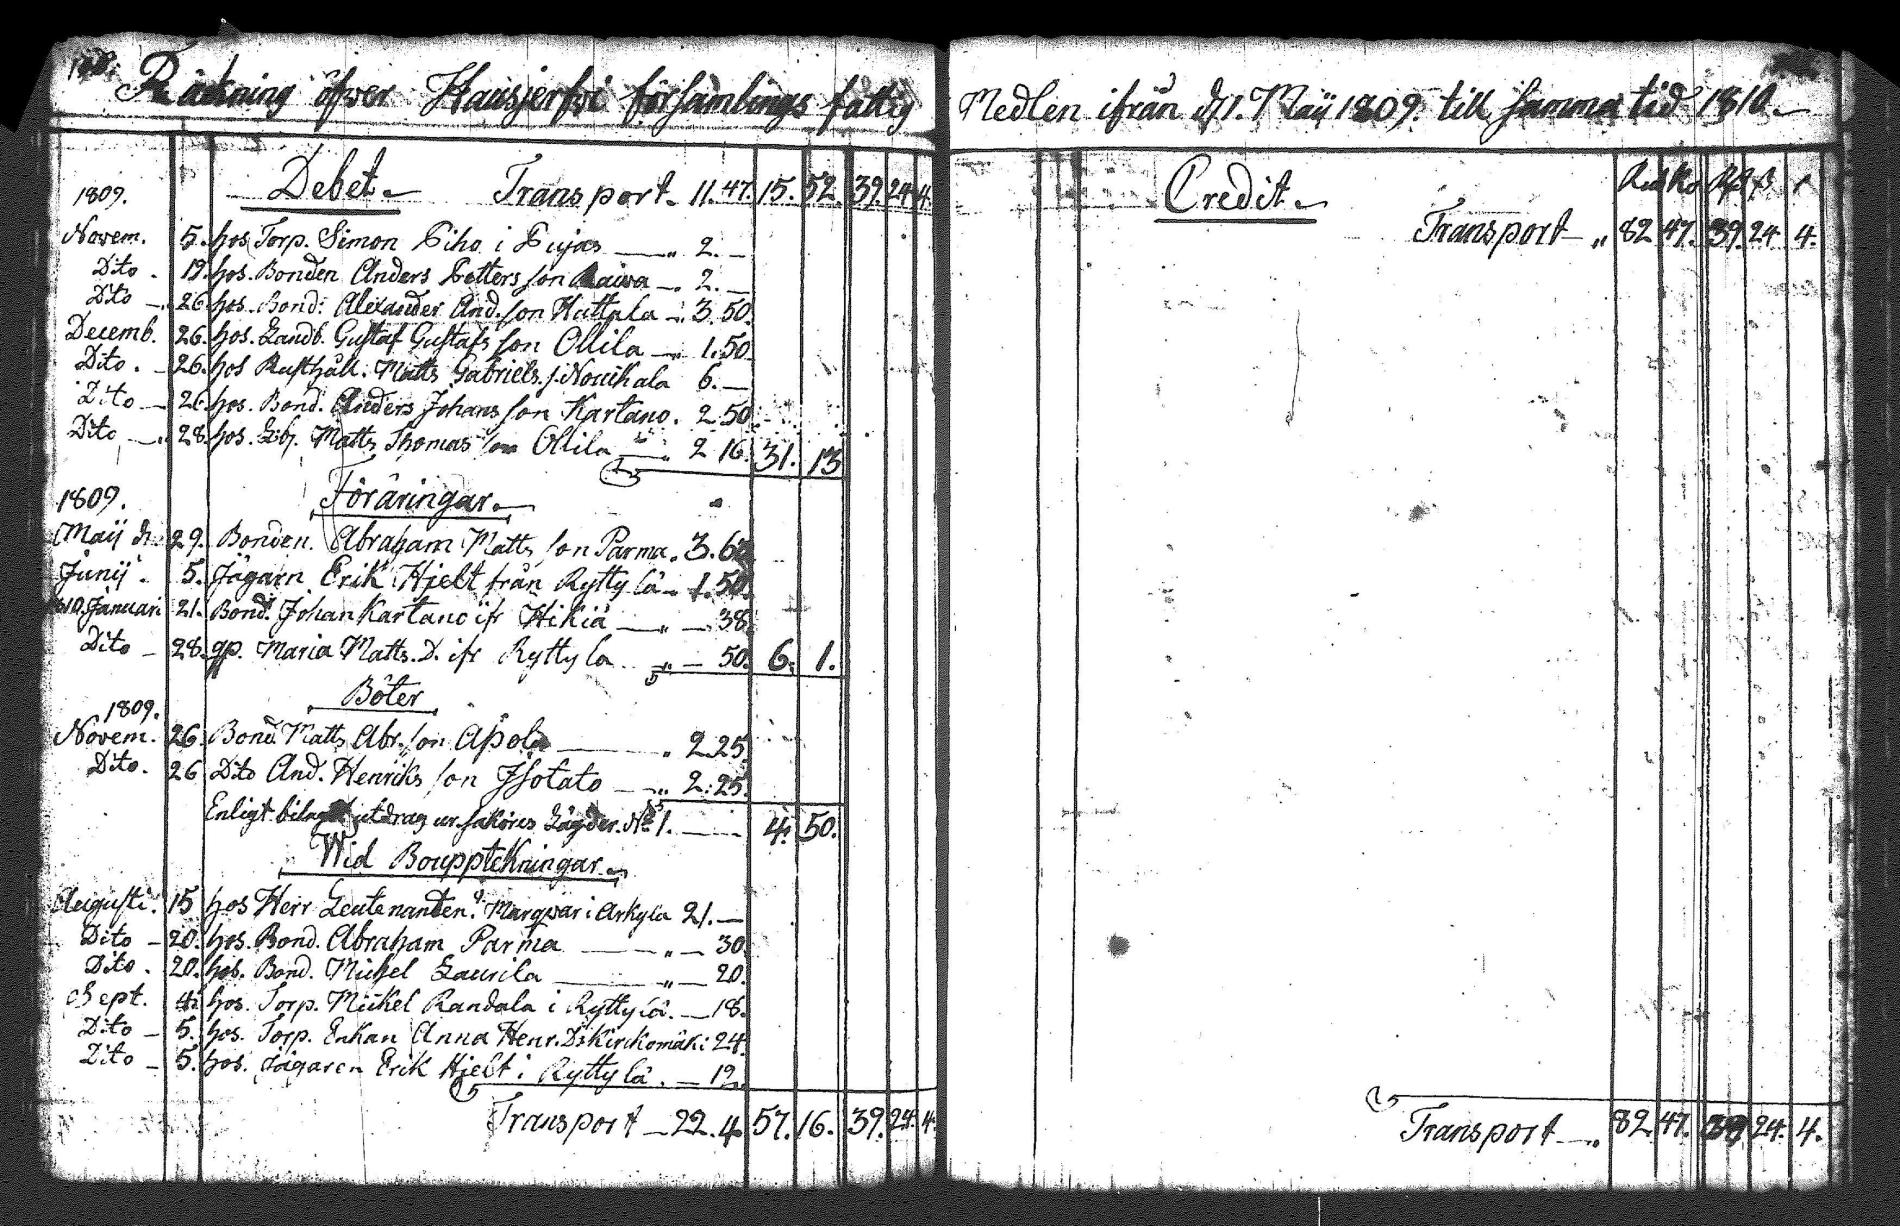 Räckning öfver Hausjerfvi församlings fattig
Debet. Transport. 11.47. 15. 52. 39. 24. 4.
1809.
Novem. 5. hos Torp. Simon Piho i Pujas — „ 2. —
Dito. 19. hos. Bonden Anders Petters son Raiva — 2. —
Dito — 26. hos. Bond. Alexander And. son Huttala — 3. 50.
Decemb. 26. hos. Landb. Gustaf Gustafs son Ollila — 1. 50.
Dito. — 26. hos Rusthåll. Matts Gabriels. s. Nouikala 6. —
Dito — 26. hos. Bond. Anders Johans son Kartano. 2. 50.
Dito — 28. hos. Lbf. Matts Thomas son Ollila — 2 16. 31. 13
Föräringar.
1809.
Maij d. 29. Bonden. Abraham Matts son Parma. 3. 63
Junij. 5. Jägarn Erik Hjelt från Ryttylä — 1. 50.
1810. Januari 21. Bond. Johan Kartano ifr Hikiä — „ — 38.
Dito — 28. gp. Maria Matts. D. ifr Ryttyla „ — 50. 6. 1.
Böter
1809.
Novem. 26. Bond. Matts Abr. son Apola — „ 2. 25.
Dito. 26 Dito And. Henriks son Isotalo — „ 2. 25.
Enligt bilagt utdrag ur saköres Lägder. No 1. — 4. 50.
Wid Bouppteckningar.
Augusti. 15 hos Herr Leutenanten Marqvar i Arkyla 21. —
Dito — 20. hos. Bond. Abraham Parma — „ — 30.
Dito. 20. hos. Bond. Michel Laurila — „ — 20.
Sept. 4. hos. Torp. Mickel Randala i Ryttylä. — 18.
Dito — 5. hos. Torp. Enkan Anna Henr. D. Kirikomäki 24.
Dito — 5. hos. Jägaren Erik Hjelt i Ryttylä. — 12.
Transport — 22. 4. 57. 16. 39. 24. 4.
Medlen ifrån d. 1. Maij 1809. till samma tid 1810. —
Credit.
Transport — „ 82. 47. 39. 24. 4.
Transport — „ 82. 47. 39. 24. 4.